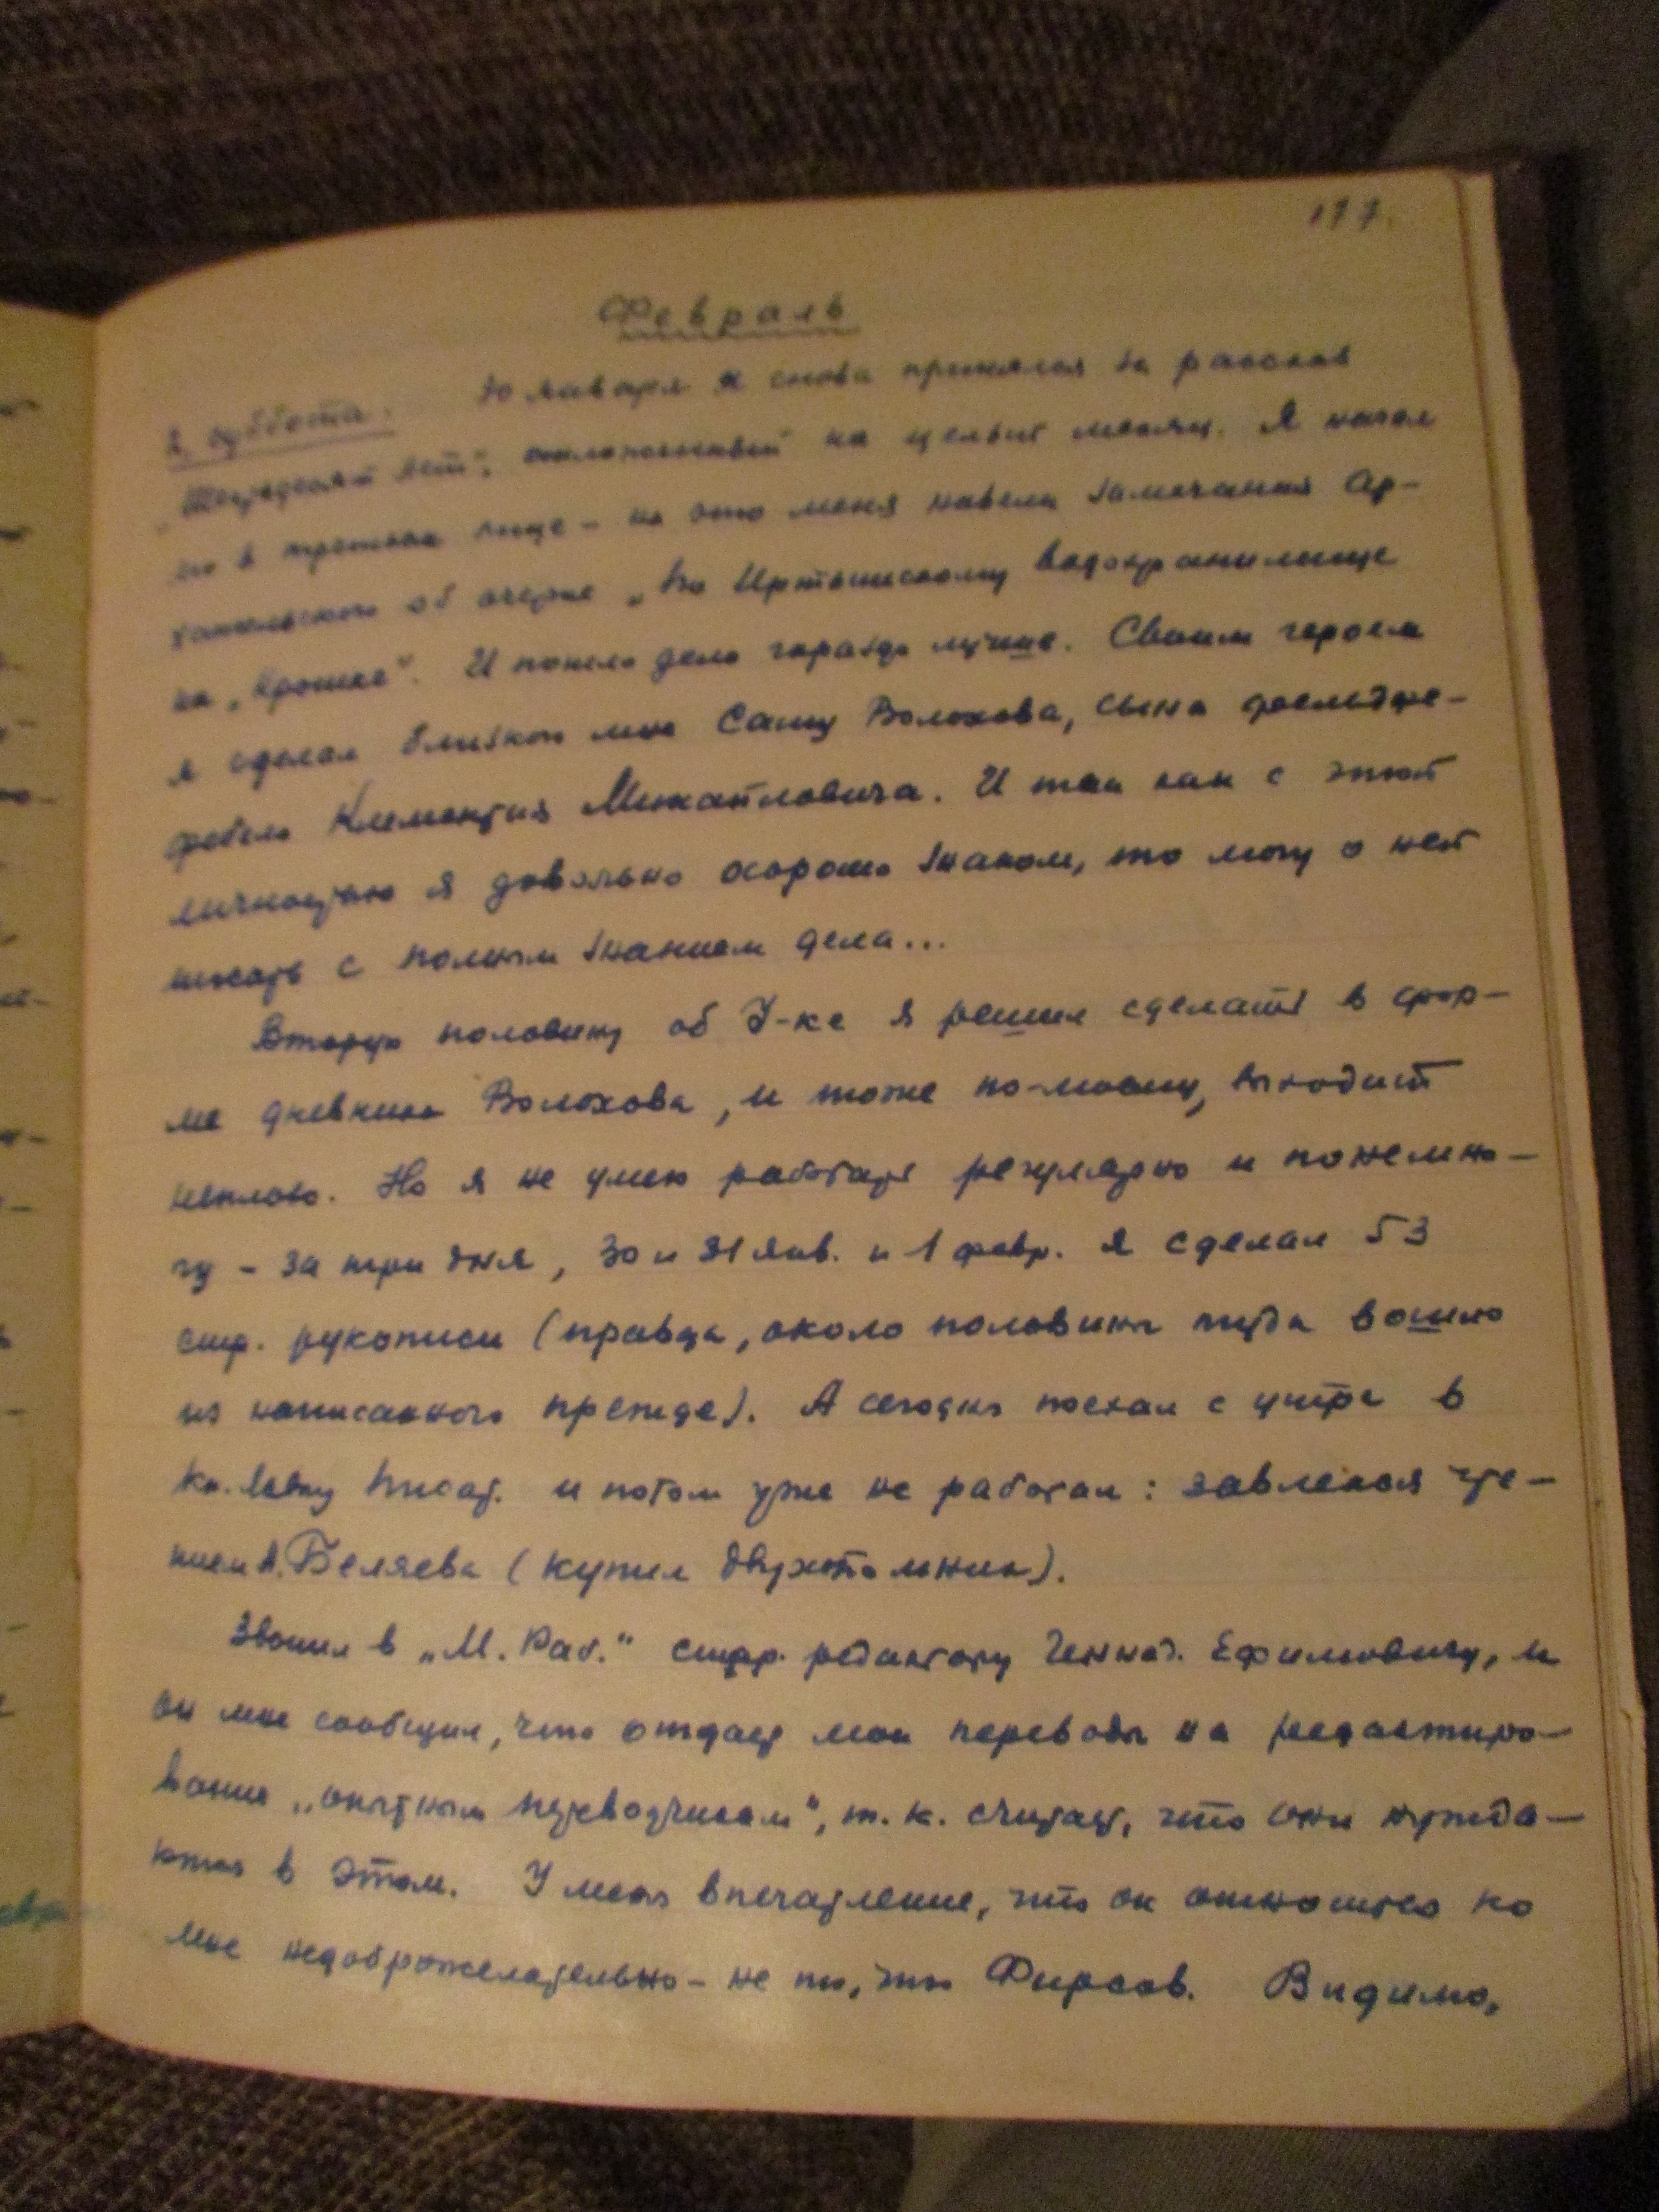 117.
Февраль
2. суббота. 30 января я снова принялся за рассказ
лет", отложенный на целый месяц. Я начал
его в третьем лице – на это меня навели замечания Ар-
хангельского об очерке „По Иртышскому водохранилищу
на „Крошке". И пошло дело гораздо лучше. Своим героем
я сделал близкого мне Сашу Волохова, сына фельдфе-
фебеля Клементия Михайловича. И так как с этой
личностью я довольно хорошо знаком, то могу о ней
писать с полным знанием дела...
Вторую половину об У-ке я решил сделать в фор-
ме дневника Волохова, и тоже по-моему, выходит
неплохо. Но я не умею работать регулярно и понемно-
гу – за три дня, 30 и 31 янв. и 1 февр. я сделал 53
стр. рукописи (правда, около половины туда вошло
из написанного прежде). А сегодня поехал с утра в
Кн. лавку писат. и потом уже не работал: завлекся чте-
нием А. Беляева (купил двухтомник).
Звонил в „М. Раб." старр. редактору Геннад. Ефимовичу, и
он мне сообщил, что отдает мои переводы на редактиро-
вание „опытным переводчикам", т. к. считает, что они нужда-
ются в этом. У меня впечатление, что он относится ко
мне недоброжелательно – не то, что Фирсов. Видимо,